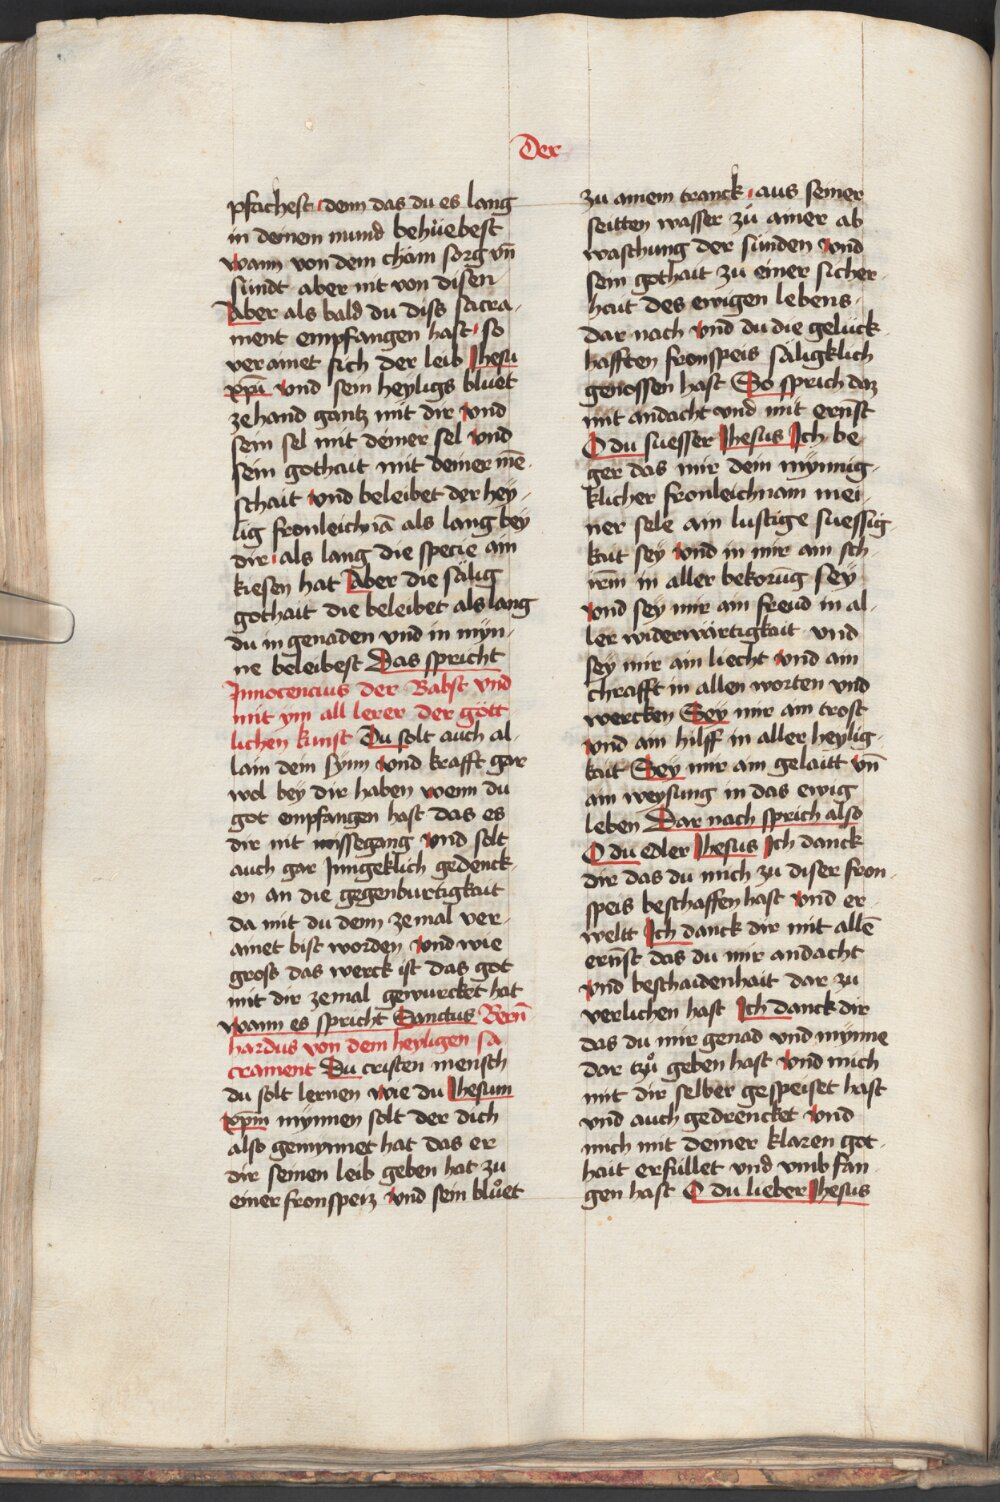 Der
pfachest denn das du es lang
in deinem mund behüebest
wann von dem cham sorg vn̄
sündt aber nit von disen
Aber als bald du diss sacra-
ment empfangen hast so
verainet sich der leib Jhesu
xp̄i vnd sein heyligs bluet
zehand gantz mit dir vnd
sein sel mit deiner sel vnd
sein gothait mit deiner mē-
schait vnd beleibet der hey-
lig fronleichnā als lang bey
dir als lang die specie ain
kiesen hat Aber die sälig
gothait die beleibet als lang
du in genaden vnd in myn-
ne beleibest Das spricht
Innocencius der Babst vnd
mit ym all lerer der gött
lichen kunst Du solt auch al-
lain dein synn vnd krafft gar
wol bey dir haben wenn du
got empfangen hast das es
dir nit missegang vnd solt
auch gar Inngeklich gedenck-
en an die gegenburtigkait
da mit du denn zemal ver-
ainet bist worden vnd wie
gross das werck ist das got
mit dir zemal gewurcket hat
wann es spricht Sanctus Bern̄
hardus von dem heyligen sa
crament Du cristen mensch
du solt lernen wie du Jhesum
xp̄m mynnen solt der dich
also gemynnet hat das er
dir seinen leib geben hat zu
einer fronspeiz vnd sein bluet
zu ainem tranck aus seiner
seitten wasser zu ainer ab
waschung der sünden vnd
sein gothait zu einer sicher-
hait des ewigen lebens
dar nach vnd du die gelück-
hafften fronspeis säligklich
genossen hast So sprich daz
mit andacht vnd mit ernst
O du suesser Jhesus Ich be-
ger das mir dein mynnig-
klicher fronleichnam mei-
ner sele ain lustige suessig-
kait sey vnd in mir ain sch-
irm in aller bekorūg sey
vnd sey mir ain freud in al-
ler widerwärtigkait vnd
sey mir ain liecht vnd ain
chrafft in allen worten vnd
wercken Sey mir ain trost
vnd ain hilff in aller heylig-
kait Sey mir ain gelaitt vn̄
ain weysung in das ewig
leben Dar nach sprich also
O du edler Jhesus Ich danck
dir das du mich zu diser fron-
speis beschaffen hast vnd er-
weltt Ich danck dir mit allē
ernst das du mir andacht
vnd beschaidenhait dar zu
verlichen hast Ich danck dir
das du mir genad vnd mynne
dar tzů geben hast vnd mich
mit dir selber gespeiset hast
vnd auch gedrencket vnd
mich mit deiner klaren got-
hait erfüllet vnd vmb fan-
gen hast O du lieber Jhesus